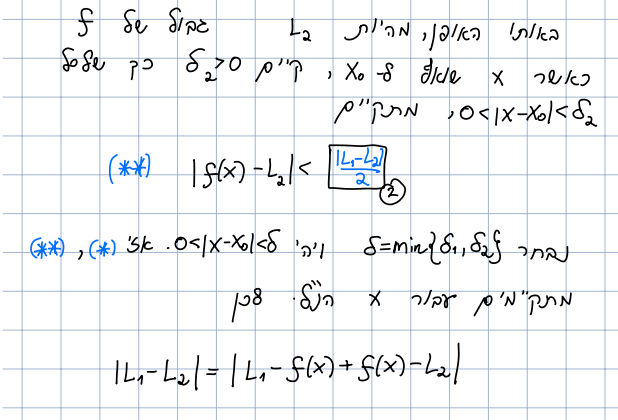 באותו האופן, מהיות L₂ גבול של f
כאשר x שואף ל-x₀, קיים δ₂>0 כך שלכל
0<|x-x₀|<δ₂, מתקיים
(**) |f(x)-L₂| < |L₁-L₂|/2 ②
נבחר δ=min{δ₁,δ₂} ויהי 0<|x-x₀|<δ. אזי (*), (**)
מתקיימים עבור x הנ"ל. לכן
|L₁-L₂| = |L₁-f(x)+f(x)-L₂|